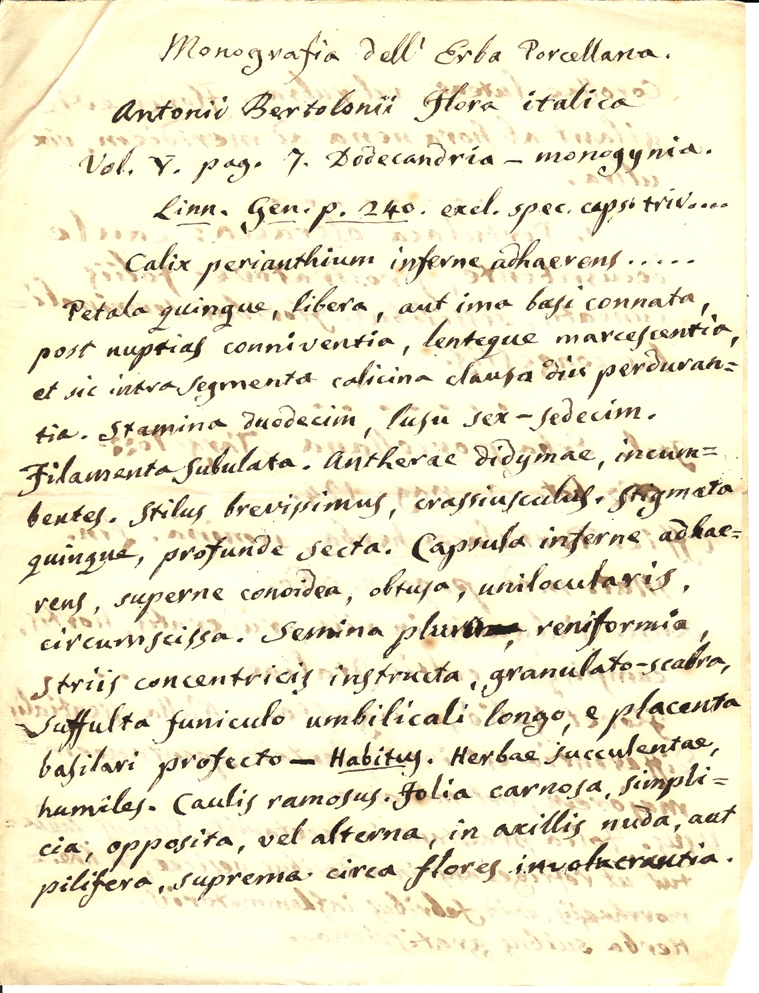 Monografia dell' Erba Porcellana.
Antonii Bertolonii Flora italica
Vol. V. pag. 7. Dodecandria – monogynia.
Linn. Gen. p. 240. excl. spec. caps. triv....
Calix perianthium inferne adhaerens.....
Petala quinque, libera, aut ima basi connata,
post nuptias conniventia, lenteque marcescentia,
et sic intra segmenta calicina clausa diu perduran=
tia. Stamina duodecim, lusu sex–sedecim.
Filamenta subulata. Antherae didymae, incum=
bentes. Stilus brevissimus, crassiusculus. Stigmata
quinque, profunde secta. Capsula inferne adhae=
rens, superne conoidea, obtusa, unilocularis,
circumscissa. Semina plurima, reniformia,
striis concentricis instructa, granulato-scabra,
suffulta funiculo umbilicali longo, e placenta
basilari profecto — Habitus. Herbae succulentae,
humiles. Caulis ramosus. Folia carnosa, simpli=
cia, opposita, vel alterna, in axillis nuda, aut
pilifera, suprema circa flores involucrantia.